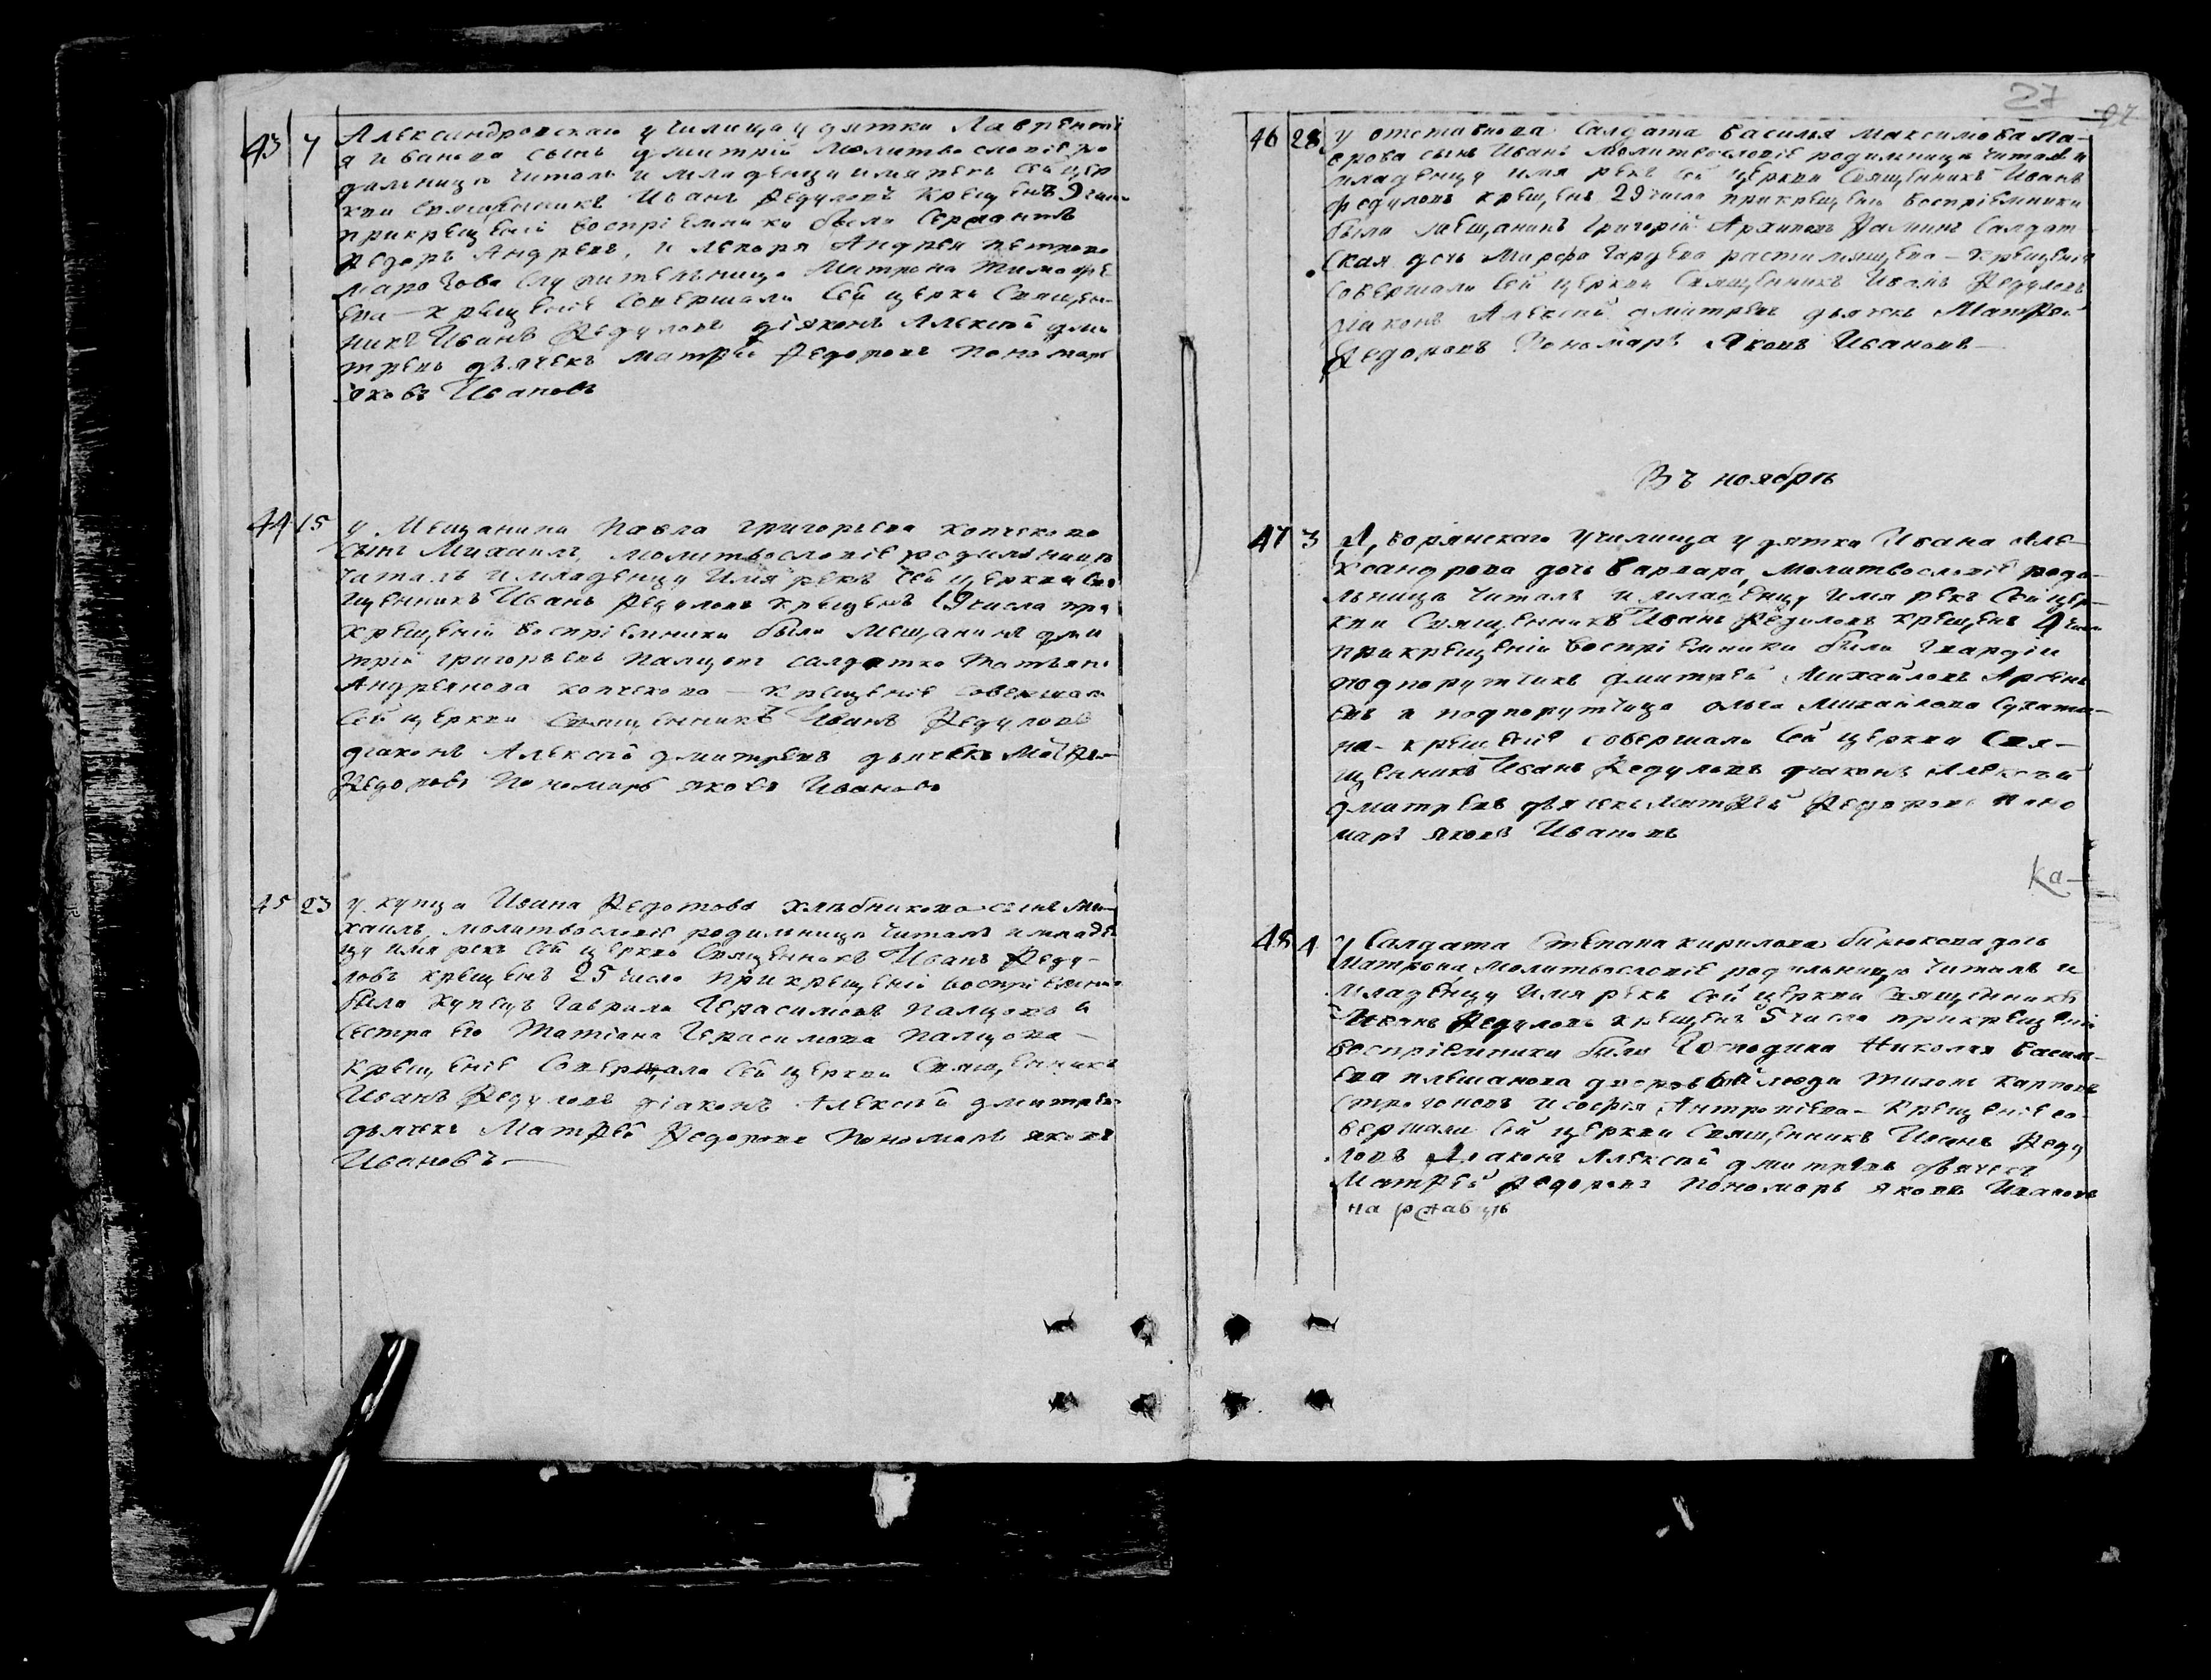 43 7 Александровскаго училища у дятки Лаврентi
я Иванова сынъ дмитрiй молитвословiе ро
дильницѣ читалъ и младенцу имя рекъ сей цер
кви священникъ Иванъ Федуловъ крещенъ 9 числа
прикрещенiй воспрiемники были Сержантъ
Федоръ Андревъ, и лекоря Андрея петрова
служительница Матрона Тимофе
ева — крещенiе совершали сей церкви Священ
никъ Иванъ Федуловъ дiяконъ Алексѣй дми
тревъ дьячекъ матфѣй Федоровъ Пономарь
яковъ Ивановъ
44 15 у Мещанина Павла григорьева копчекова
сынъ Михаилъ, молитвословiе родильницѣ
читалъ и младенцу имя рекъ сей церкви свя
щенникъ Иванъ Федуловъ крещенъ 19 числа при
крещенiй воспрiемники были Мещанинъ дми
трiй григорьевъ палцовъ салдатка татьяна
Андреянова копчекова — крещенiе совершали
сей церкви Священникъ Иванъ Федуловъ
дiаконъ Алексѣй дмитревъ дьячекъ Матфей
Федоровъ Пономарь яковъ Ивановъ
45 23 у купца Ивана Федотова хлѣбникова сынъ Ми
хаилъ, молитвословiе родильницѣ читалъ и младен
цу имя рекъ сей церкви Священникъ Иванъ Феду-
ловъ крещенъ 25 число прикрещенiй воспрiемники
были купецъ гаврила Герасимовъ палцовъ и
сестра его Татiана Герасимова палцова —
крещенiе совершали сей церкви Священникъ
Иванъ Федуловъ дiаконъ Алексѣй дмитревъ
дьячекъ Матфей Федоровъ Пономарь яковъ
Ивановъ —
27
46 28 у отставнова Салдата василья максимова ла-
сына Иванъ молитвословiе родильницѣ читалъ и
младенцу имя рекъ сей церкви Священникъ Иванъ
Федуловъ крещенъ 29 числа прикрещенiи воспрiемники
были мещанинъ григорiй Архиповъ Салдат
ская дочь Марфа — крещенiе
совершали сей церкви Священникъ Иванъ Федуловъ
дiаконъ Алексѣй дмитревъ дьячекъ Матфей
Федоровъ Пономарь Яковъ Ивановъ —
Въ ноябрѣ
47 3 Дворянскаго училища у дятки Ивана але-
ксандрова дочь варвара, молитвословiе роди-
льницѣ читалъ и младенцу имя рекъ сей цер-
кви Священникъ Иванъ Федуловъ крещенъ 4 числа
прикрещенiи воспрiемники были Гвардiи
подпорутчикъ дмитрей Михайловъ Арсень
евъ и подпорутчица ольга Михайлова Сухоти-
на — крещенiе совершали сей церкви Свя-
щенникъ Иванъ Федуловъ дiаконъ Алексѣй
дмитревъ дьячекъ матфѣй Федоровъ поно
марь яковъ Ивановъ
Ка-
48 4 у Салдата Степана кирилова бирюкова дочь
матрона, молитвословiе родильницѣ читалъ и
младенцу имя рекъ сей церкви священникъ
Иванъ Федуловъ крещенъ 5 числа прикрещенiи
воспрiемники были Господина Николая васил-
ева плещанова дворовый люди Тихонъ карповъ
строгоновъ и софiя Антропiева — крещенiе со-
вершали сей церкви Священникъ Иванъ Феду
ловъ Дiаконъ Алексѣй дмитревъ дьячекъ
Матфей Федоровъ Пономарь яковъ Ивановъ